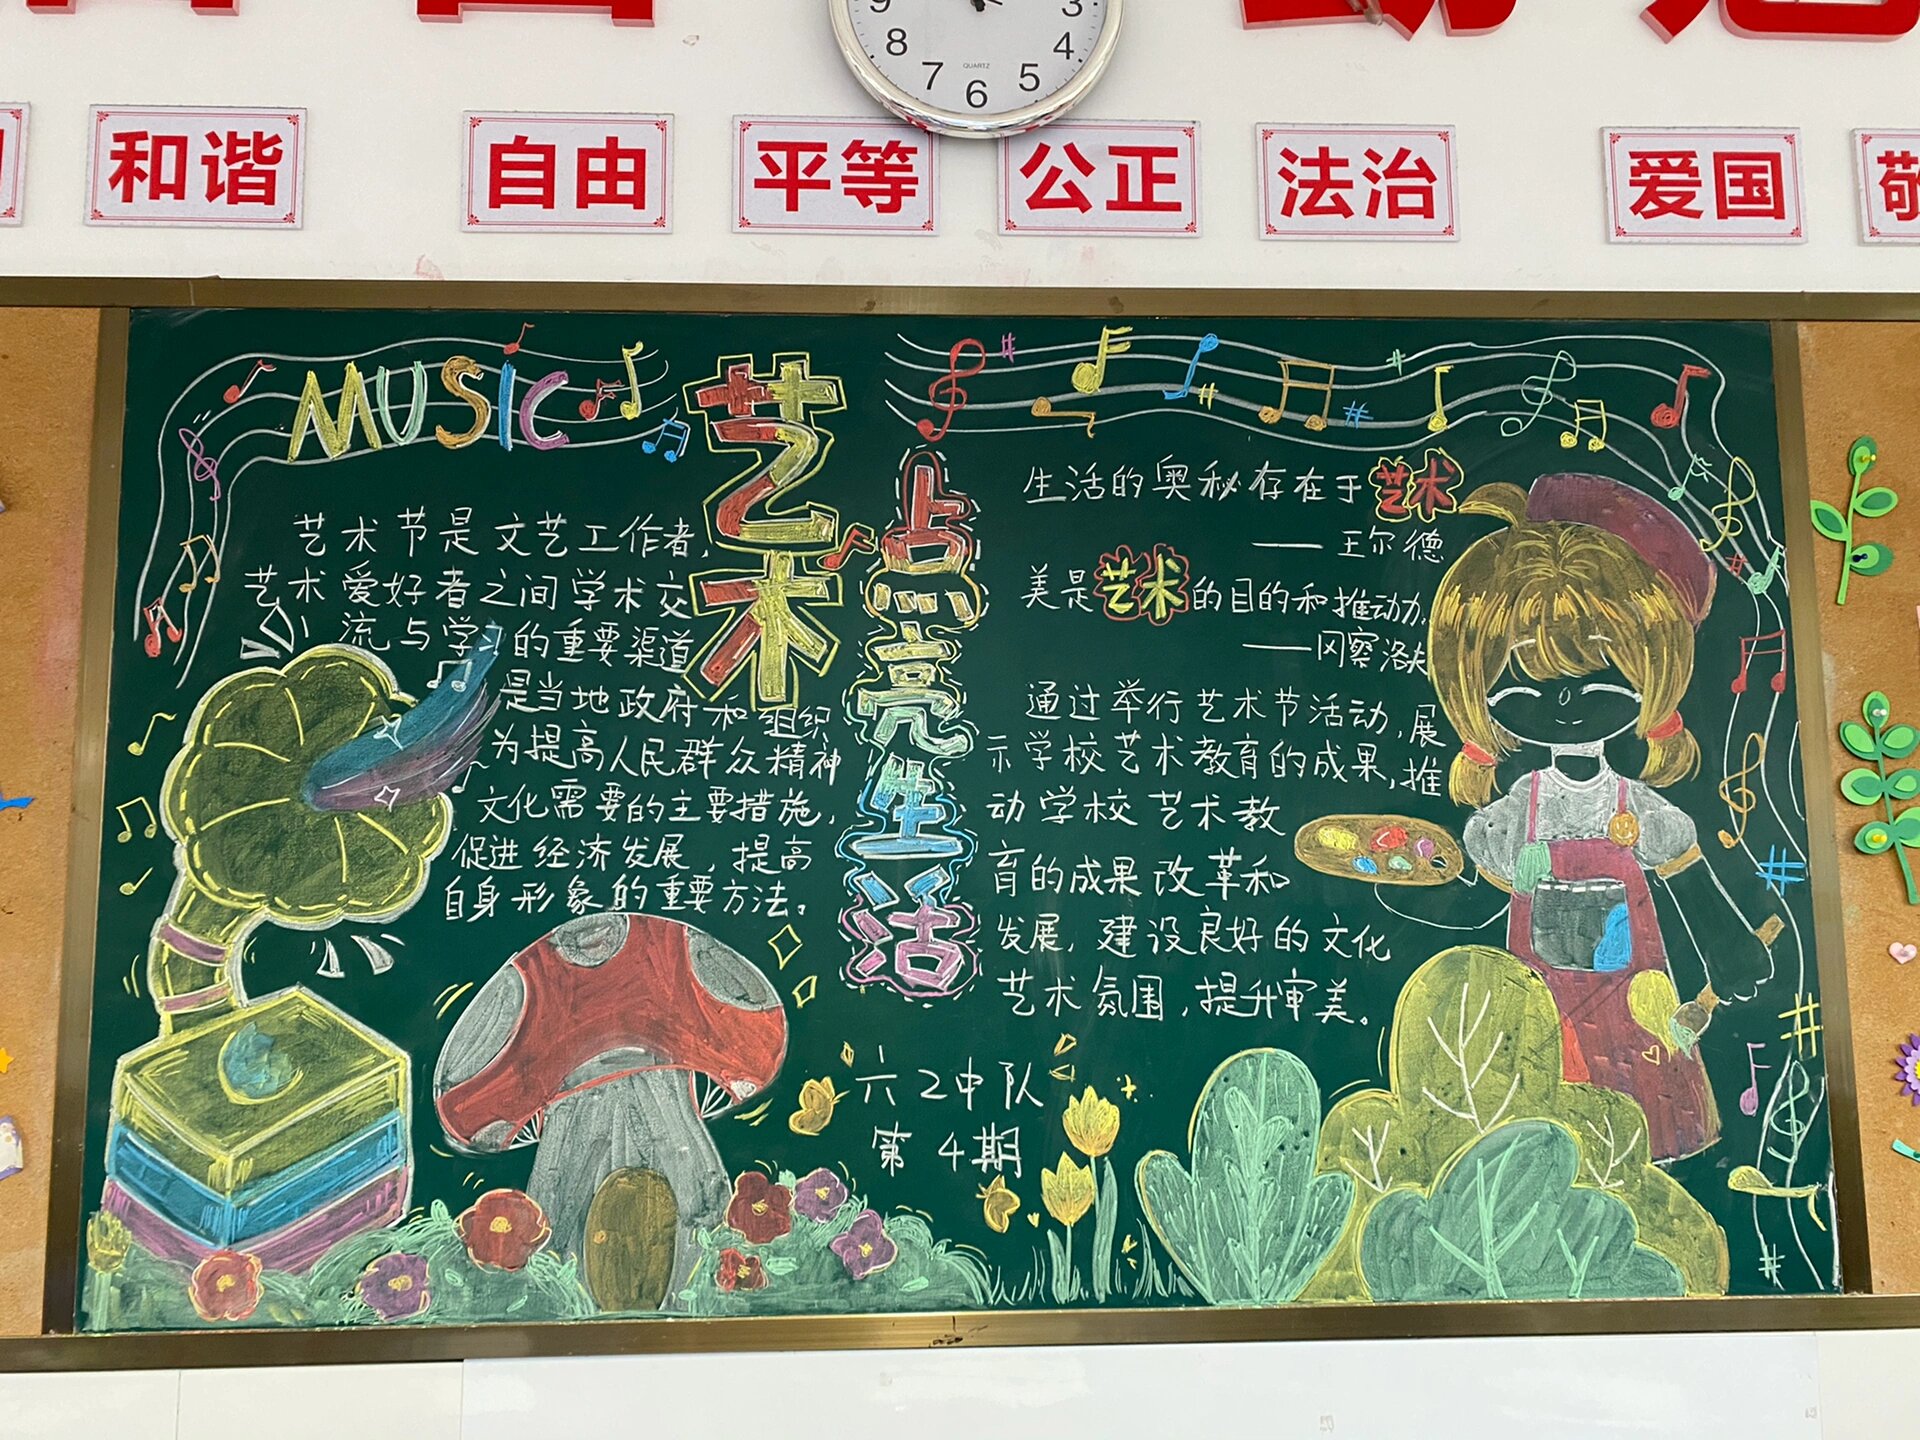 9 3
8 4
7 QUARTZ 5
6
和谐
自由
平等
公正
法治
爱国
敬
MUSIC
艺术
点亮生活
艺术节是文艺工作者,
艺术爱好者之间学术交
流与学习的重要渠道
是当地政府和组织
为提高人民群众精神
文化需要的主要措施,
促进经济发展,提高
自身形象的重要方法。
生活的奥秘存在于艺术
——王尔德
美是艺术的目的和推动力。
——冈察洛夫
通过举行艺术节活动,展
示学校艺术教育的成果,推
动学校艺术教
育的成果改革和
发展,建设良好的文化
艺术氛围,提升审美。
六2中队
第4期